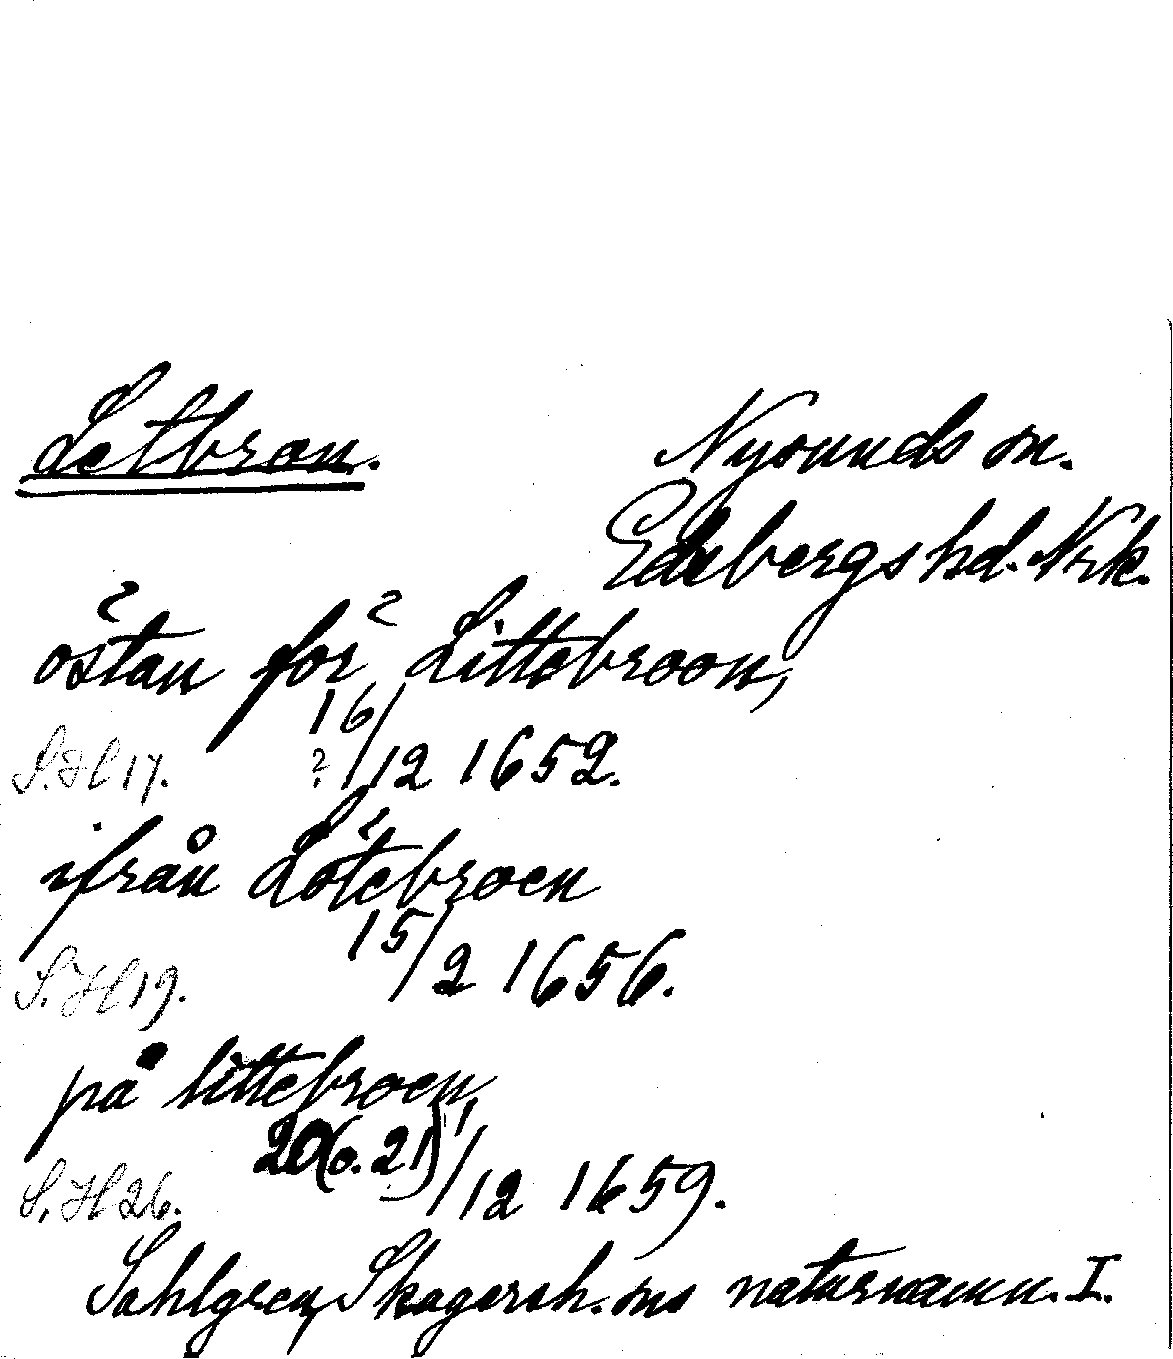 Letbron.
Nysunds sn.
Edsbergs hd. Nrk.
östan för Littebroon,
16/12 1652.
S.H 17. ?
ifrån Lötebroen
15/2 1656.
S.H 19.
på littebroen,
20(o. 21)/12 1659.
S.H 26.
Sahlgren, Skagersh. sns naturnamn. I.